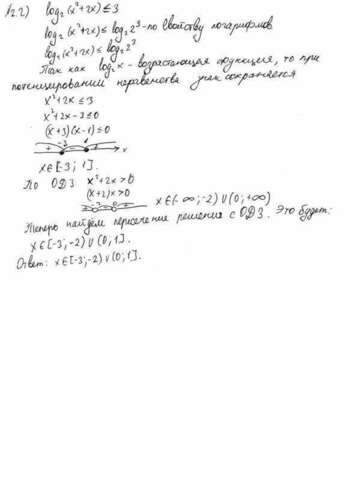 12.2) log₂(x²+2x) ≤ 3
log₂(x²+2x) ≤ log₂2³ - по свойству логарифмов
log₂(x²+2x) ≤ log₂2³
Так как log₂x - возрастающая функция, то при
потенцировании неравенства знак сохраняется
x²+2x ≤ 3
x²+2x-3 ≤ 0
(x+3)(x-1) ≤ 0
+ -3 - 1 + x
x∈[-3; 1].
По ОДЗ x²+2x > 0
(x+2)x > 0
-2 0 x∈(-∞; -2) ∪ (0; +∞)
Теперь найдём пересечение решения с ОДЗ. Это будет:
x∈[-3; -2) ∪ (0; 1].
Ответ: x∈[-3; -2) ∪ (0; 1].